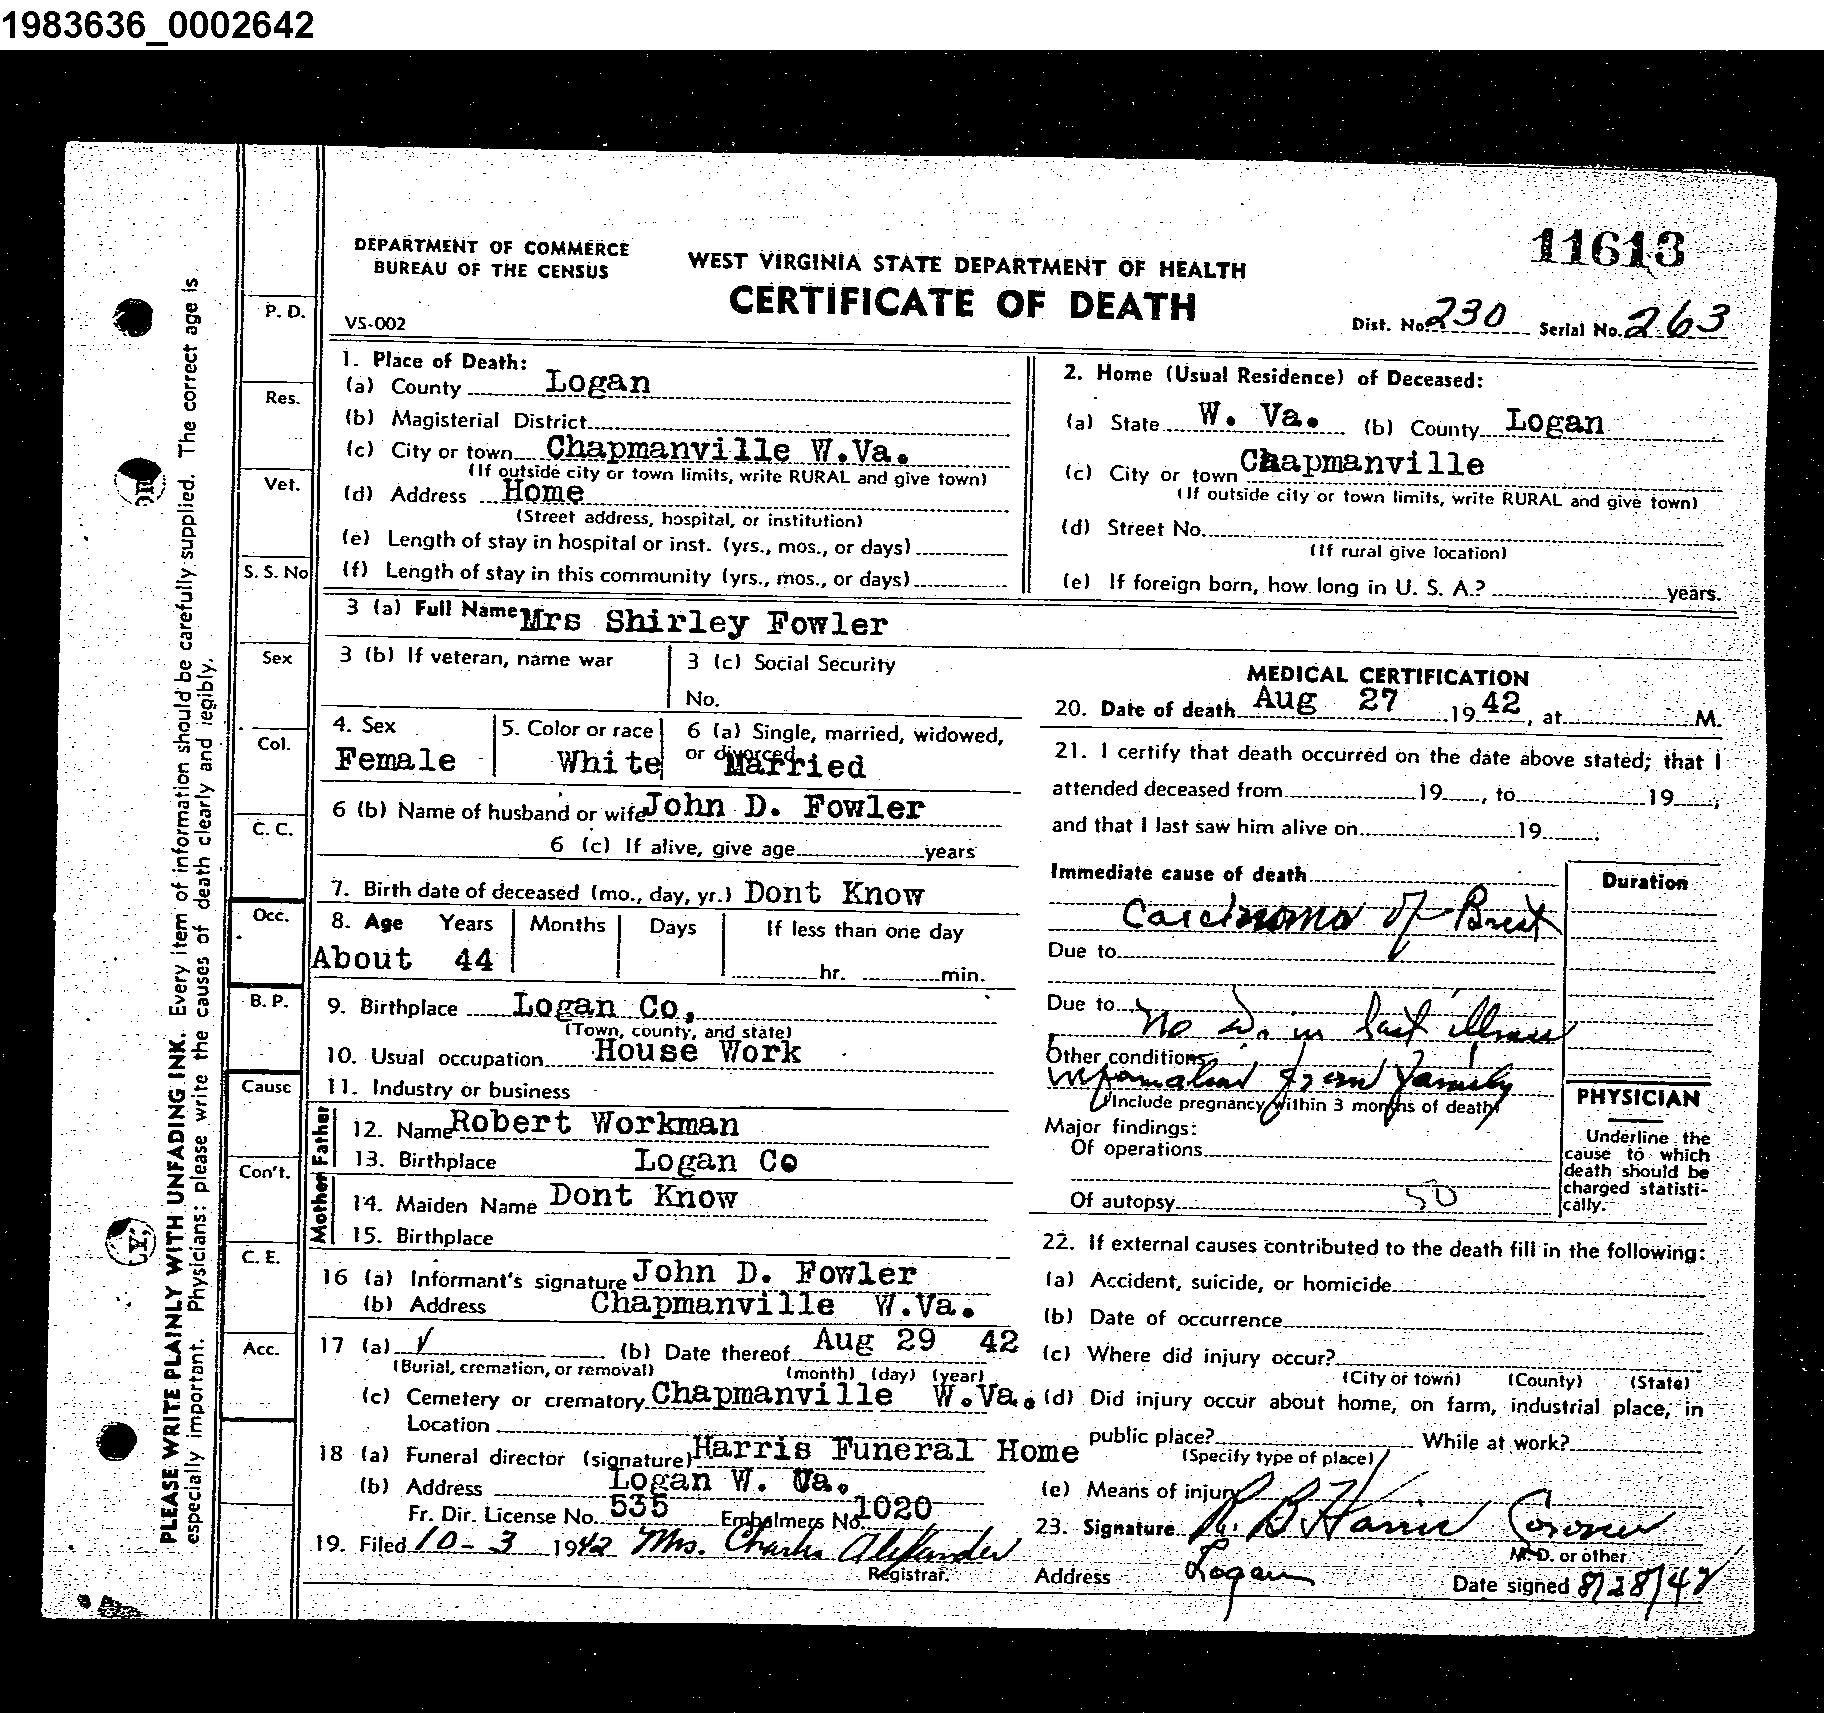 1983636_0002642
11613
DEPARTMENT OF COMMERCE
BUREAU OF THE CENSUS
WEST VIRGINIA STATE DEPARTMENT OF HEALTH
CERTIFICATE OF DEATH
VS-002
Dist. No. 230 Serial No. 263
PLEASE WRITE PLAINLY WITH UNFADING INK. Every item of information should be carefully supplied. The correct age is
especially important. Physicians: please write the causes of death clearly and legibly.
P. D.
Res.
Vet.
S. S. No
Sex
Col.
C. C.
Occ.
B. P.
Cause
Con't.
C. E.
Acc.
1. Place of Death:
(a) County Logan
(b) Magisterial District
(c) City or town Chapmanville W.Va.
(If outside city or town limits, write RURAL and give town)
(d) Address Home
(Street address, hospital, or institution)
(e) Length of stay in hospital or inst. (yrs., mos., or days)
(f) Length of stay in this community (yrs., mos., or days)
2. Home (Usual Residence) of Deceased:
(a) State W. Va. (b) County Logan
(c) City or town Chapmanville
(If outside city or town limits, write RURAL and give town)
(d) Street No.
(If rural give location)
(e) If foreign born, how long in U. S. A.? years.
3 (a) Full Name Mrs Shirley Fowler
3 (b) If veteran, name war
3 (c) Social Security
No.
4. Sex
Female
5. Color or race
White
6 (a) Single, married, widowed,
or divorced
Married
6 (b) Name of husband or wife John D. Fowler
6 (c) If alive, give age years
7. Birth date of deceased (mo., day, yr.) Dont Know
8. Age Years Months Days If less than one day
About 44 hr. min.
9. Birthplace Logan Co,
(Town, county, and state)
10. Usual occupation House Work
11. Industry or business
Father
12. Name Robert Workman
13. Birthplace Logan Co
Mother
14. Maiden Name Dont Know
15. Birthplace
16 (a) Informant's signature John D. Fowler
(b) Address Chapmanville W.Va.
17 (a) √ (b) Date thereof Aug 29 42
(Burial, cremation, or removal) (month) (day) (year)
(c) Cemetery or crematory Chapmanville W.Va.
Location
18 (a) Funeral director (signature) Harris Funeral Home
(b) Address Logan W. Va.
Fr. Dir. License No. 535 Embalmers No. 1020
19. Filed 10-3 1942 Mrs. Charles Alexander
Registrar.
MEDICAL CERTIFICATION
20. Date of death Aug 27 1942, at M.
21. I certify that death occurred on the date above stated; that I
attended deceased from 19 , to 19 ,
and that I last saw him alive on 19 .
Immediate cause of death
Duration
Carcinoma of Brest
Due to
Due to
No Dr. in last illness
Other conditions
Information from family
(Include pregnancy within 3 months of death)
Major findings:
Of operations
Of autopsy 50
PHYSICIAN
Underline the
cause to which
death should be
charged statisti-
cally.
22. If external causes contributed to the death fill in the following:
(a) Accident, suicide, or homicide
(b) Date of occurrence
(c) Where did injury occur?
(City or town) (County) (State)
(d) Did injury occur about home, on farm, industrial place, in
public place? While at work?
(Specify type of place)
(e) Means of injury
23. Signature R. B Harris Coroner
M. D. or other
Address Logan Date signed 8/28/42